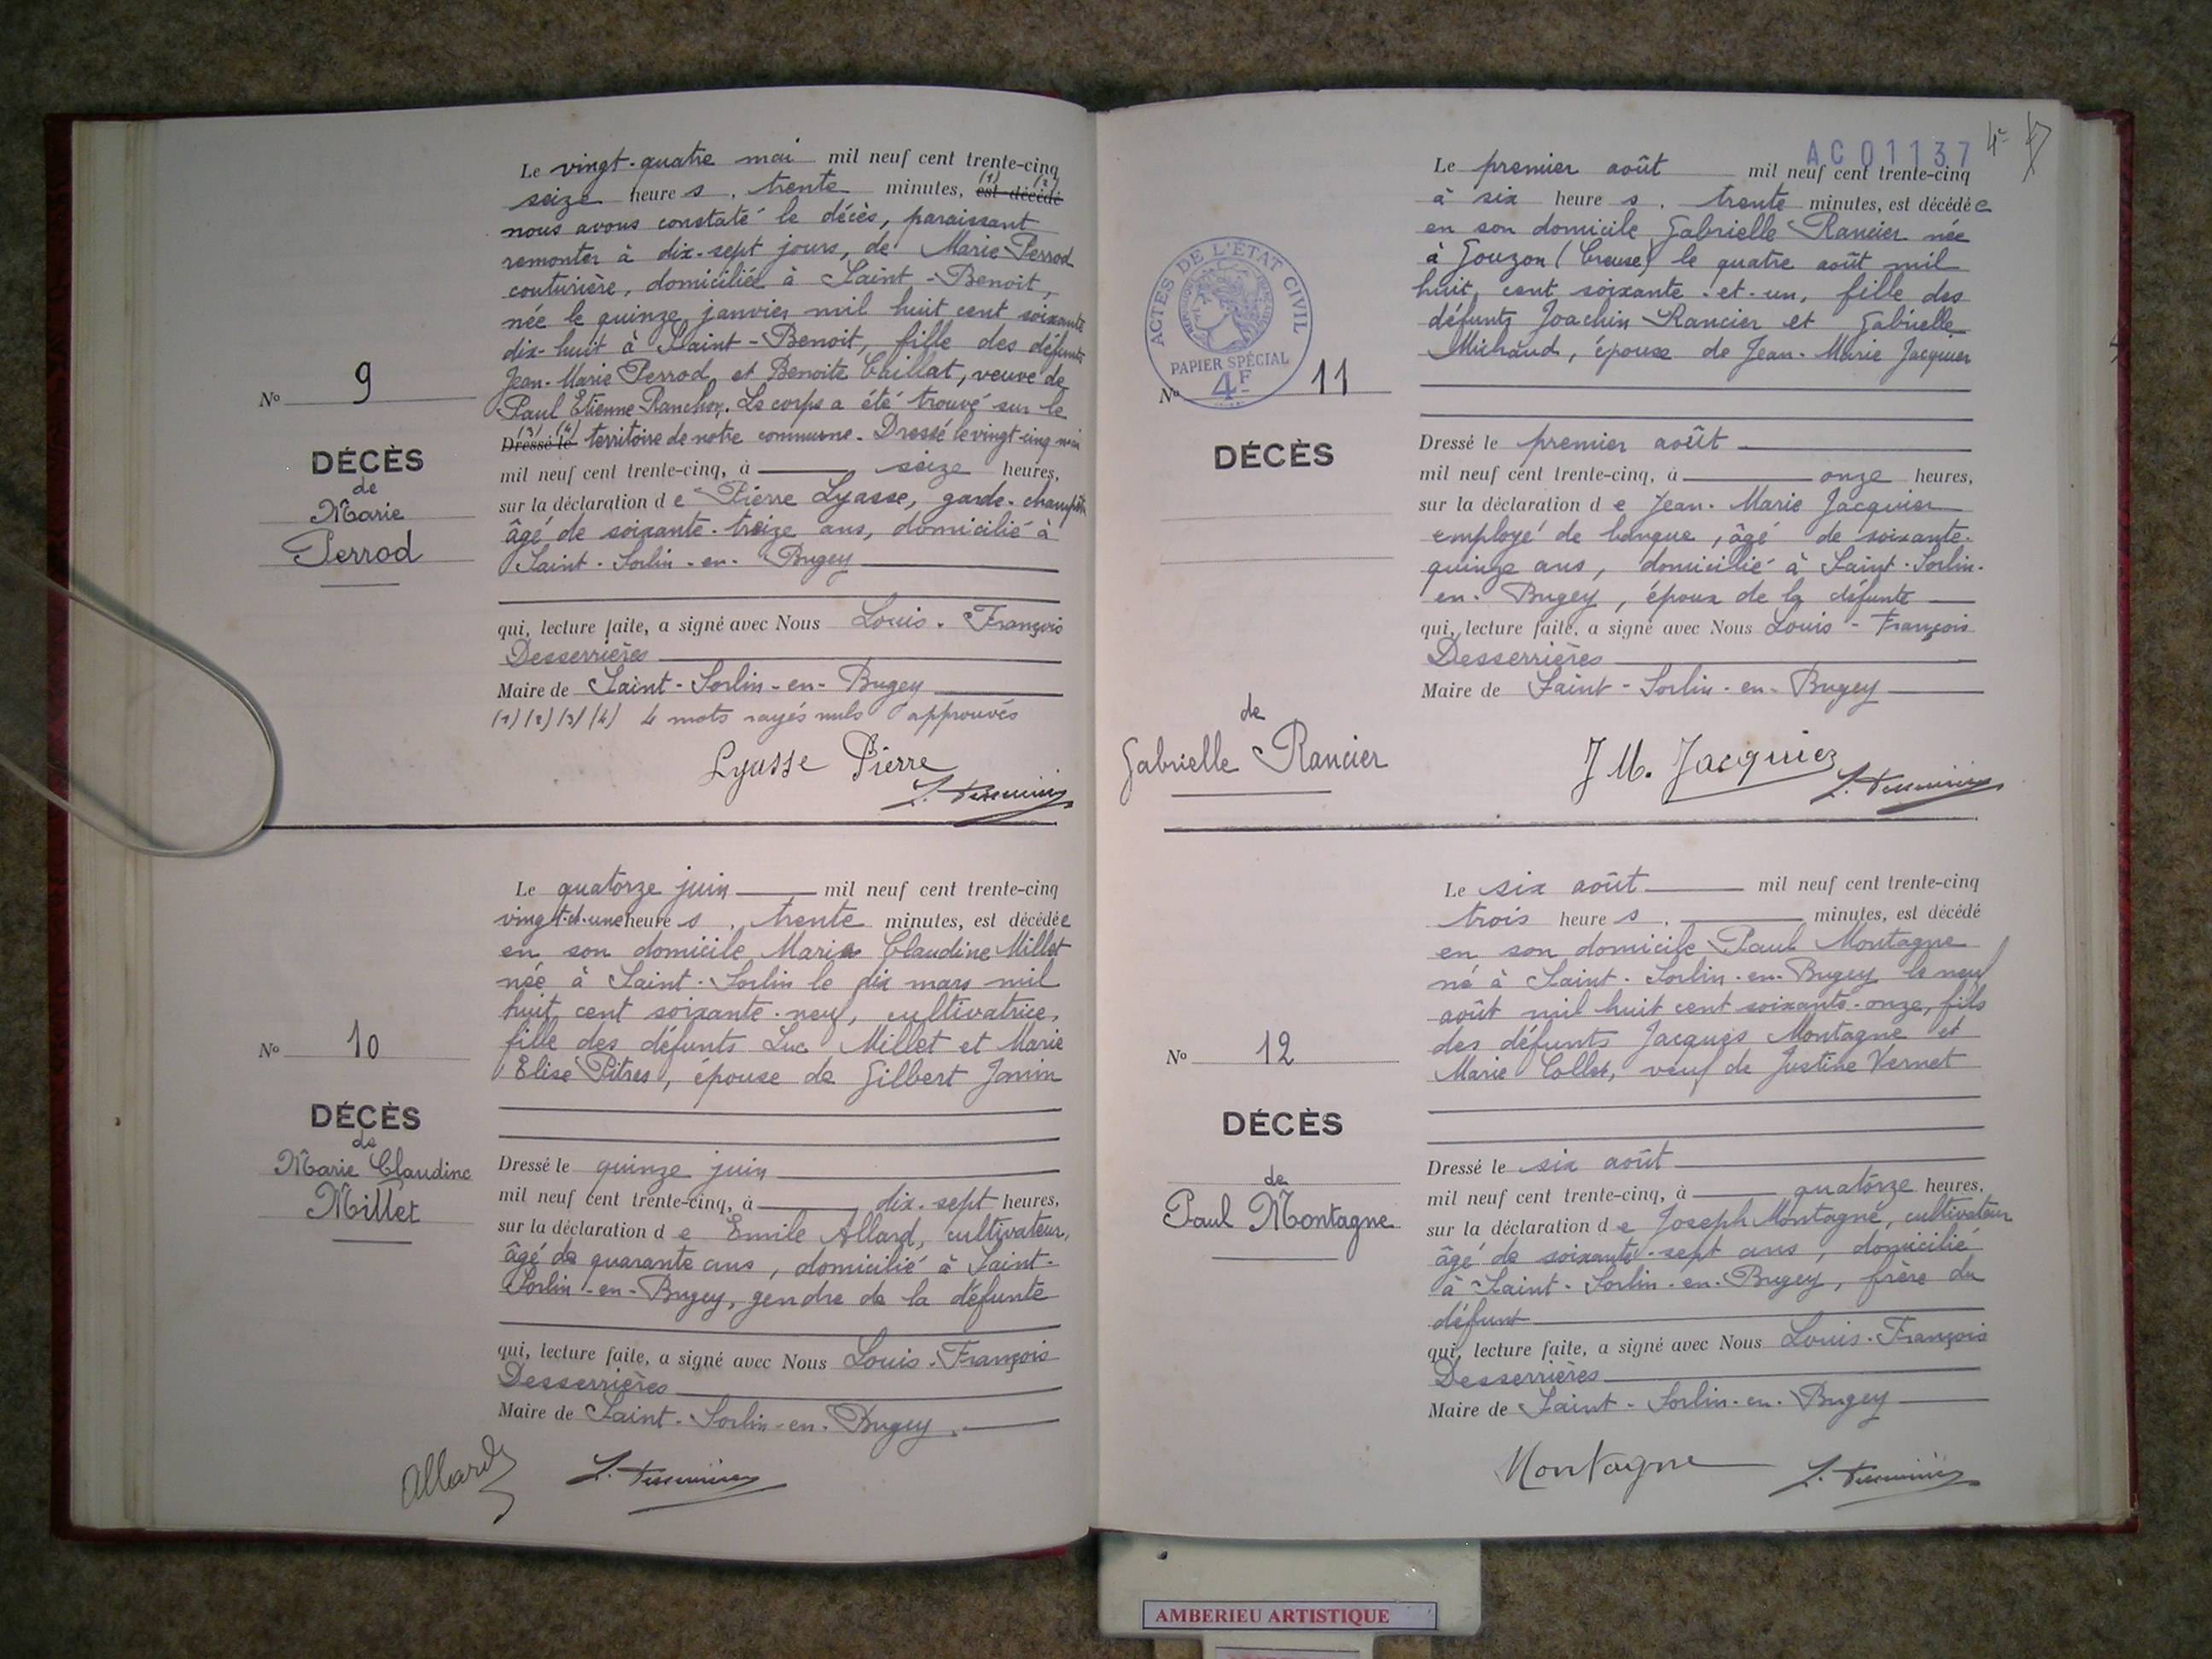 Le vingt-quatre mai mil neuf cent trente-cinq
seize heures, trente minutes, (1) est décédé (2)
nous avons constaté le décès, paraissant
remonter à dix-sept jours, de Marie Perrod
couturière, domiciliée à Saint-Benoit,
née le quinze janvier mil huit cent soixante
dix-huit à Saint-Benoit, fille des défunts
Jean-Marie Perrod et Benoite Caillat, veuve de
Paul Etienne Ranchoy. Le corps a été trouvé sur le
(3) (4)
Dressé le territoire de notre commune. Dressé le vingt-cinq mai
mil neuf cent trente-cinq, à seize heures,
sur la déclaration de Pierre Lyasse, garde-champêtre
âgé de soixante-treize ans, domicilié à
Saint-Sorlin-en-Bugey
qui, lecture faite, a signé avec Nous Louis-François
Desserrières
Maire de Saint-Sorlin-en-Bugey
(1) (2) (3) (4) 4 mots rayés nuls approuvés
Lyasse Pierre
No 9
DÉCÈS
de
Marie
Perrod
Le quatorze juin mil neuf cent trente-cinq
vingt-et-une heures, trente minutes, est décédée
en son domicile Marie Claudine Millet
née à Saint-Sorlin le dix mars mil
huit cent soixante-neuf, cultivatrice,
fille des défunts Luc Millet et Marie
Elise Pitres, épouse de Gilbert Janin
No 10
DÉCÈS
de
Marie Claudine
Millet
Dressé le quinze juin
mil neuf cent trente-cinq, à dix-sept heures,
sur la déclaration de Emile Allard, cultivateur,
âgé de quarante ans, domicilié à Saint-
Sorlin-en-Bugey, gendre de la défunte
qui, lecture faite, a signé avec Nous Louis-François
Desserrières
Maire de Saint-Sorlin-en-Bugey
Allard
AC01137
Le premier août mil neuf cent trente-cinq
à six heures, trente minutes, est décédée
en son domicile Gabrielle Rancier née
à Gouzon (Creuse) le quatre août mil
huit cent soixante-et-un, fille des
défunts Joachin Rancier et Gabrielle
Michaud, épouse de Jean-Marie Jacquier
ACTES DE L'ÉTAT CIVIL
PAPIER SPÉCIAL
4F
No 11
DÉCÈS
de
Gabrielle Rancier
Dressé le premier août
mil neuf cent trente-cinq, à onze heures,
sur la déclaration de Jean-Marie Jacquier
employé de banque, âgé de soixante-
quinze ans, domicilié à Saint-Sorlin-
en-Bugey, époux de la défunte
qui, lecture faite, a signé avec Nous Louis-François
Desserrières
Maire de Saint-Sorlin-en-Bugey
J M. Jacquier
Le six août mil neuf cent trente-cinq
trois heures, minutes, est décédé
en son domicile Paul Montagne
né à Saint-Sorlin-en-Bugey le neuf
août mil huit cent soixante-onze, fils
des défunts Jacques Montagne et
Marie Collet, veuf de Justine Vernet
No 12
DÉCÈS
de
Paul Montagne
Dressé le six août
mil neuf cent trente-cinq, à quatorze heures,
sur la déclaration de Joseph Montagne, cultivateur
âgé de soixante-sept ans, domicilié
à Saint-Sorlin-en-Bugey, frère du
défunt
qui, lecture faite, a signé avec Nous Louis-François
Desserrières
Maire de Saint-Sorlin-en-Bugey
Montagne
AMBERIEU ARTISTIQUE